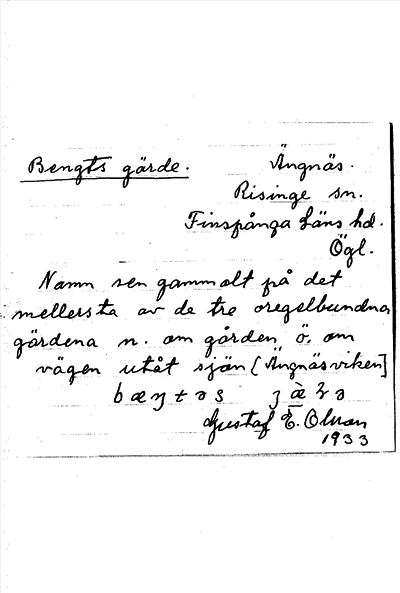 Bengts gärde. Ängnäs.
Risinge sn.
Finspånga Läns hd.
Ögl.
Namn sen gammalt på det
mellersta av de tre oregelbundna
gärdena n. om gården, ö. om
vägen utåt sjön [Ängnäsviken]
Gustaf E. Olson
1933